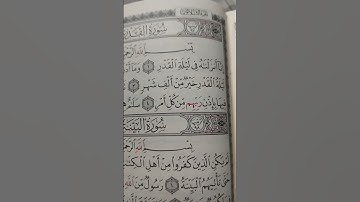 سُورَةُ الْقَدْرِ
بِسْمِ اللَّهِ الرَّحْمَٰ
أَنزَلْنَاهُ فِي لَيْلَةِ الْقَدْرِ ١ وَمَا أَدْ
الْقَدْرِ خَيْرٌ مِّنْ أَلْفِ شَهْرٍ ٣
فِيهَا بِإِذْنِ رَبِّهِم مِّن كُلِّ أَمْرٍ ٤ سَلَامٌ
سُورَةُ الْبَيِّنَةِ
بِسْمِ اللَّهِ الرَّحْمَٰ
يَكُنِ الَّذِينَ كَفَرُوا مِنْ أَهْلِ الْكِتَا
حَتَّىٰ تَأْتِيَهُمُ الْبَيِّنَةُ ١ رَسُولٌ مِّنَ